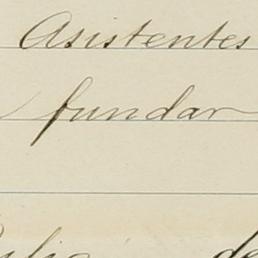 Asistentes
fundar
de